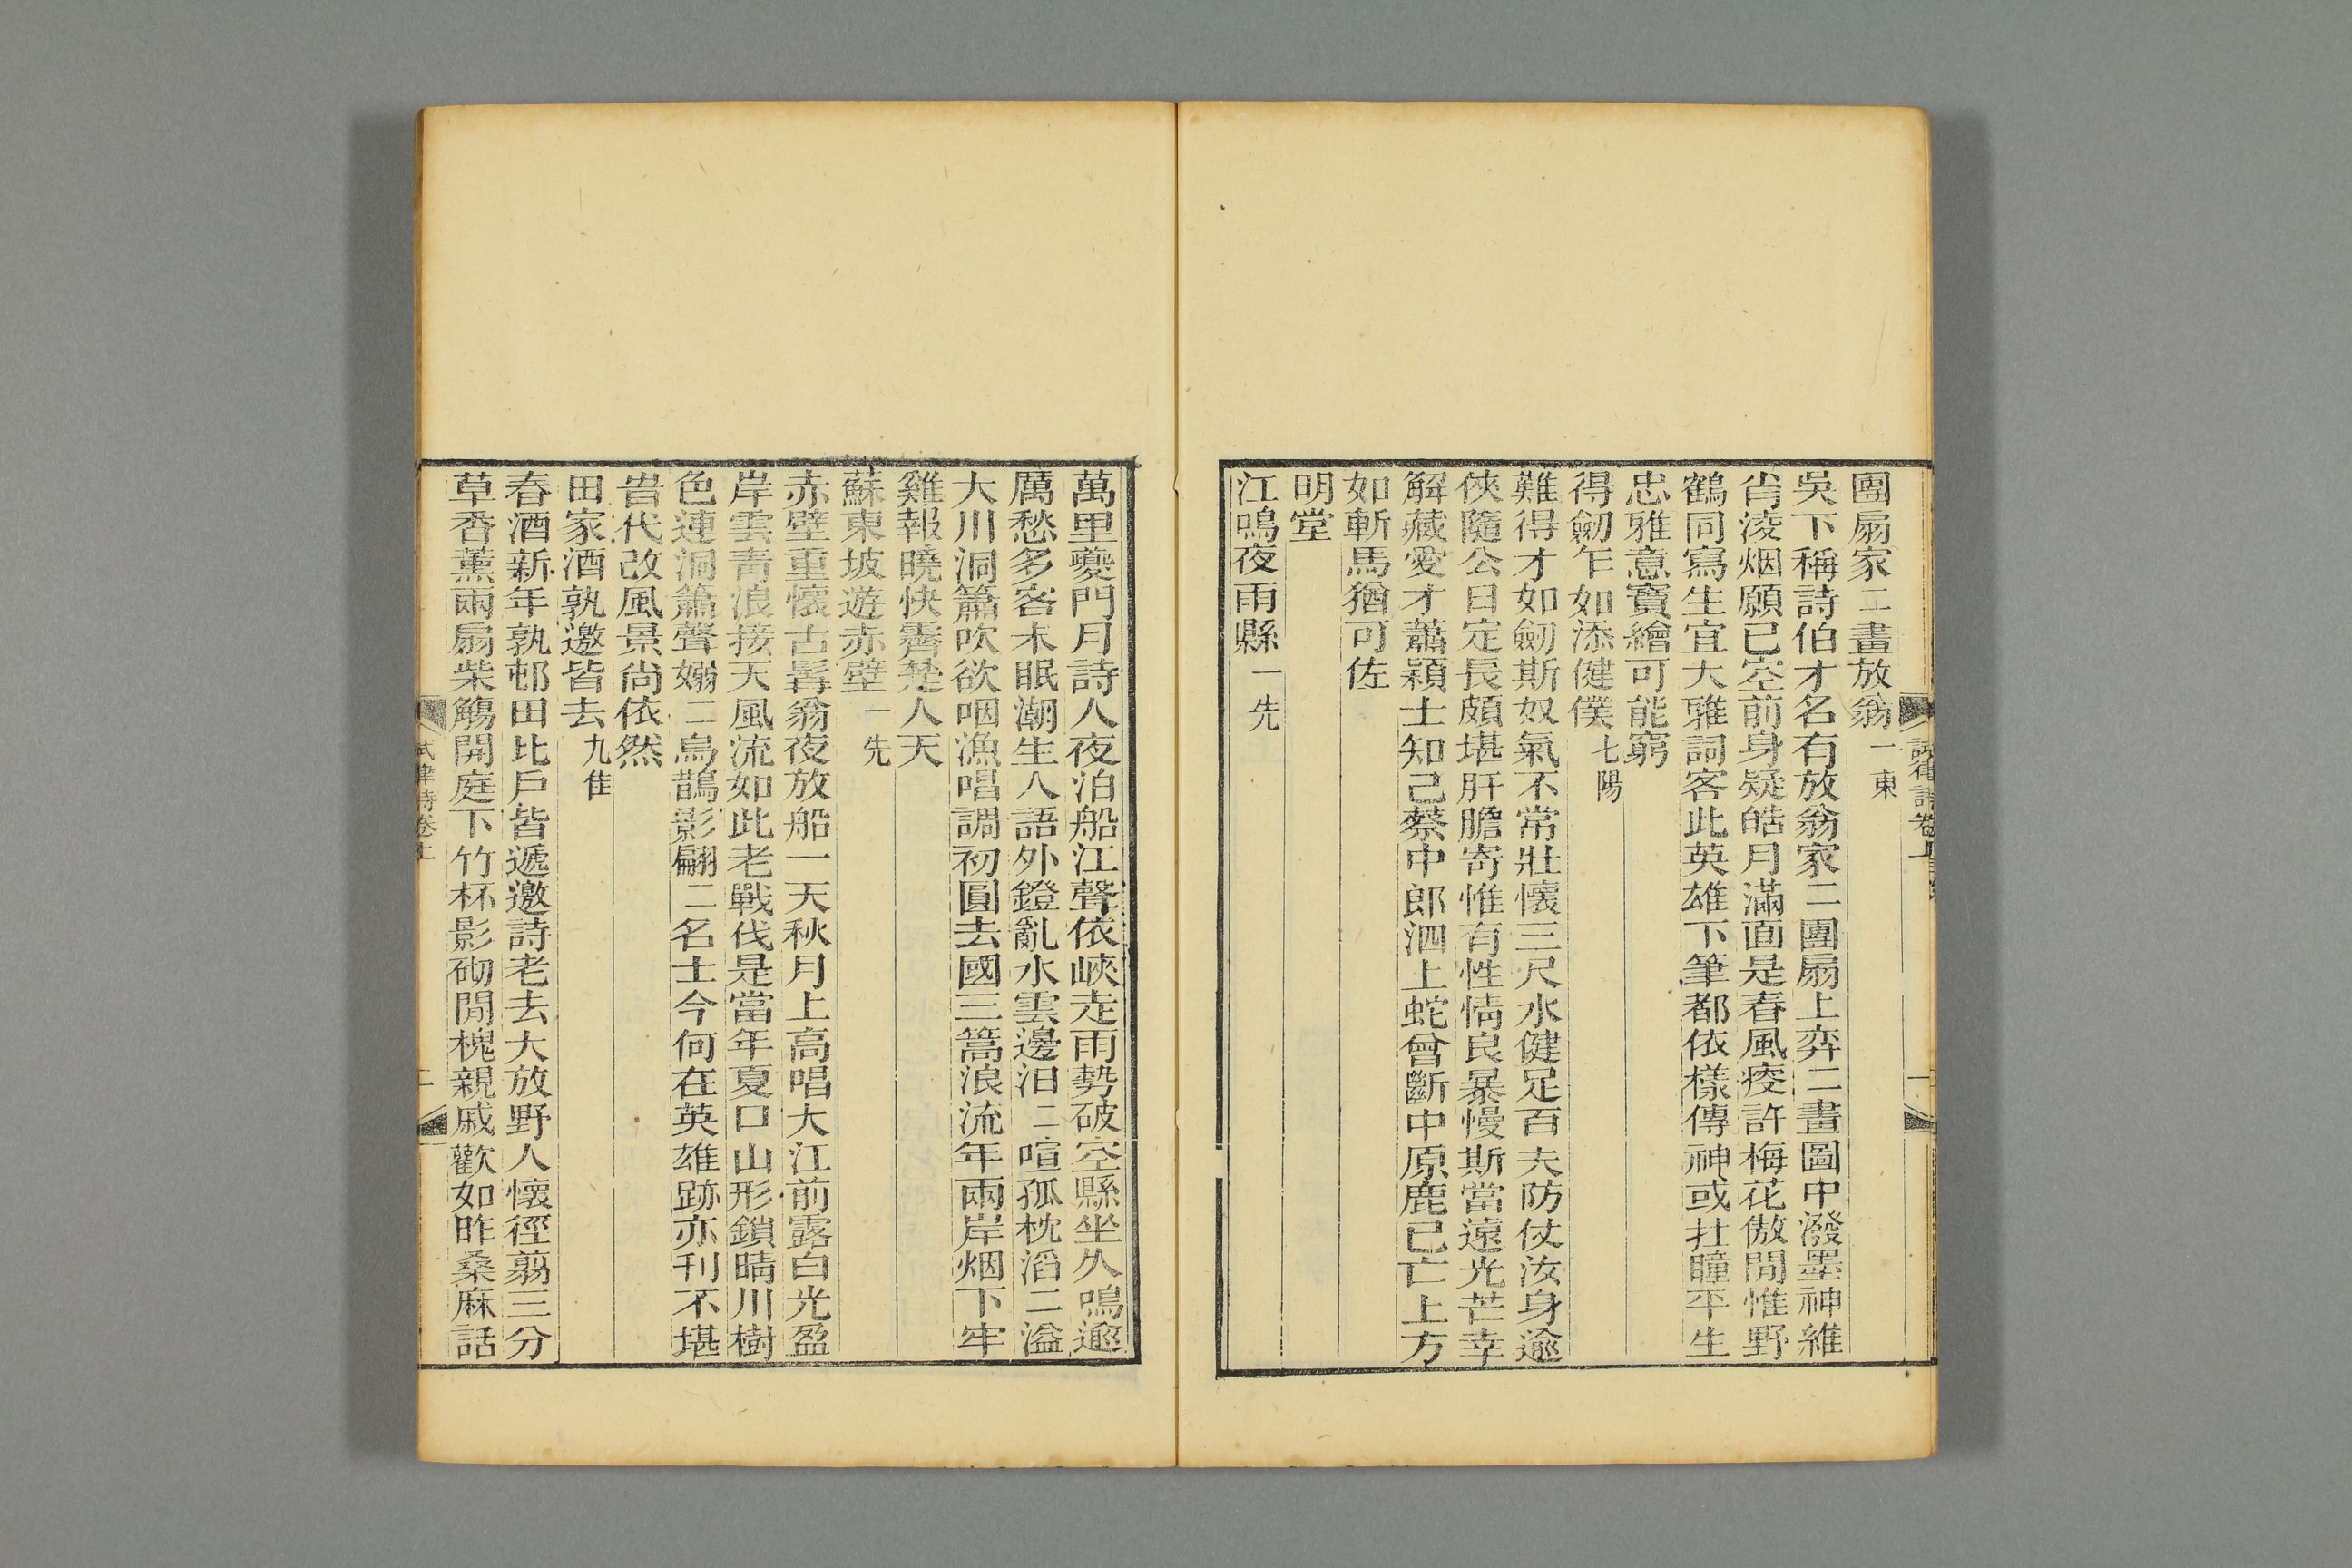 團扇家二畫放翁 一東
吳下稱詩伯才名有放翁家二團扇上弈二畫圖中潑墨神維
肖淩烟願已空前身疑皓月滿面是春風瘦許梅花傲閒惟野
鶴同寫生宜大雅詞客此英雄下筆都依樣傳神或拄瞳平生
忠雅意寶繪可能窮
得劒乍如添健僕 七陽
難得才如劒斯奴氣不常壯懷三尺水健足百夫防仗汝身逾
俠隨公目定長頗堪肝膽寄惟有性情良暴慢斯當遠光芒幸
解藏愛才蕭穎士知己蔡中郎泗上蛇曾斷中原鹿已亡上方
如斬馬猶可佐
明堂
江鳴夜雨縣 一先
萬里夔門月詩人夜泊船江聲依峽走雨勢破空縣坐久鳴逾
厲愁多客未眠潮生人語外鐙亂水雲邊汨二喧孤枕滔二溢
大川洞簫吹欲咽漁唱調初圓去國三篙浪流年兩岸烟下牢
雞報曉快霽楚人天
蘇東坡遊赤壁 一先
赤壁重懷古髯翁夜放船一天秋月上高唱大江前露白光盈
岸雲靑浪接天風流如此老戰伐是當年夏口山形鎖晴川樹
色連洞簫聲嫋二烏鵲影翩二名士今何在英雄跡亦刊不堪
昔代改風景尚依然
田家酒孰邀皆去 九佳
春酒新年孰邨田比戶皆遞邀詩老去大放野人懷徑翦三分
草香薰兩扇柴觴開庭下竹杯影砌閒槐親戚歡如昨桑麻話
試律詩卷上